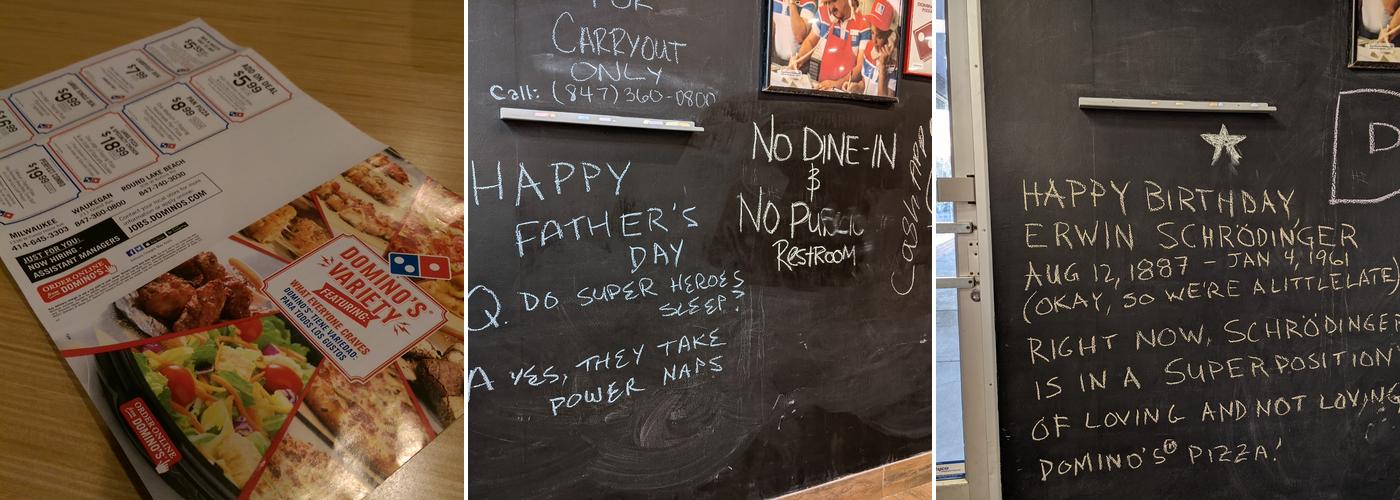 $5.99
ADD ON DEAL
$7.99
$5.99
$9.99
PAN PIZZA
$8.99
$18.99
PERFECT COMBO
$19.99
MILWAUKEE
414-645-3303
WAUKEGAN
847-360-0800
ROUND LAKE BEACH
847-740-3030
JUST FOR YOU:
NOW HIRING
ASSISTANT MANAGERS
Contact your local stores for more
JOBS.DOMINOS.COM
ORDER ONLINE
DOMINO'S
DOMINO'S
VARIETY
FEATURING:
WHAT EVERYONE CRAVES
DOMINO'S TIENE VARIEDAD:
PARA TODOS LOS GUSTOS
ORDER ONLINE
DOMINO'S
FOR
CARRYOUT
ONLY
Call: (847) 360-0800
HAPPY
FATHER'S
DAY
Q. DO SUPER HEROES
SLEEP?
A YES, THEY TAKE
POWER NAPS
NO DINE-IN
&
NO PUBLIC
RESTROOM
Cash
HAPPY BIRTHDAY,
ERWIN SCHRÖDINGER
AUG 12, 1887 - JAN 4, 1961
(OKAY, SO WE'RE A LITTLE LATE)
RIGHT NOW, SCHRÖDINGER
IS IN A SUPERPOSITION
OF LOVING AND NOT LOVING
DOMINO'S® PIZZA!
D